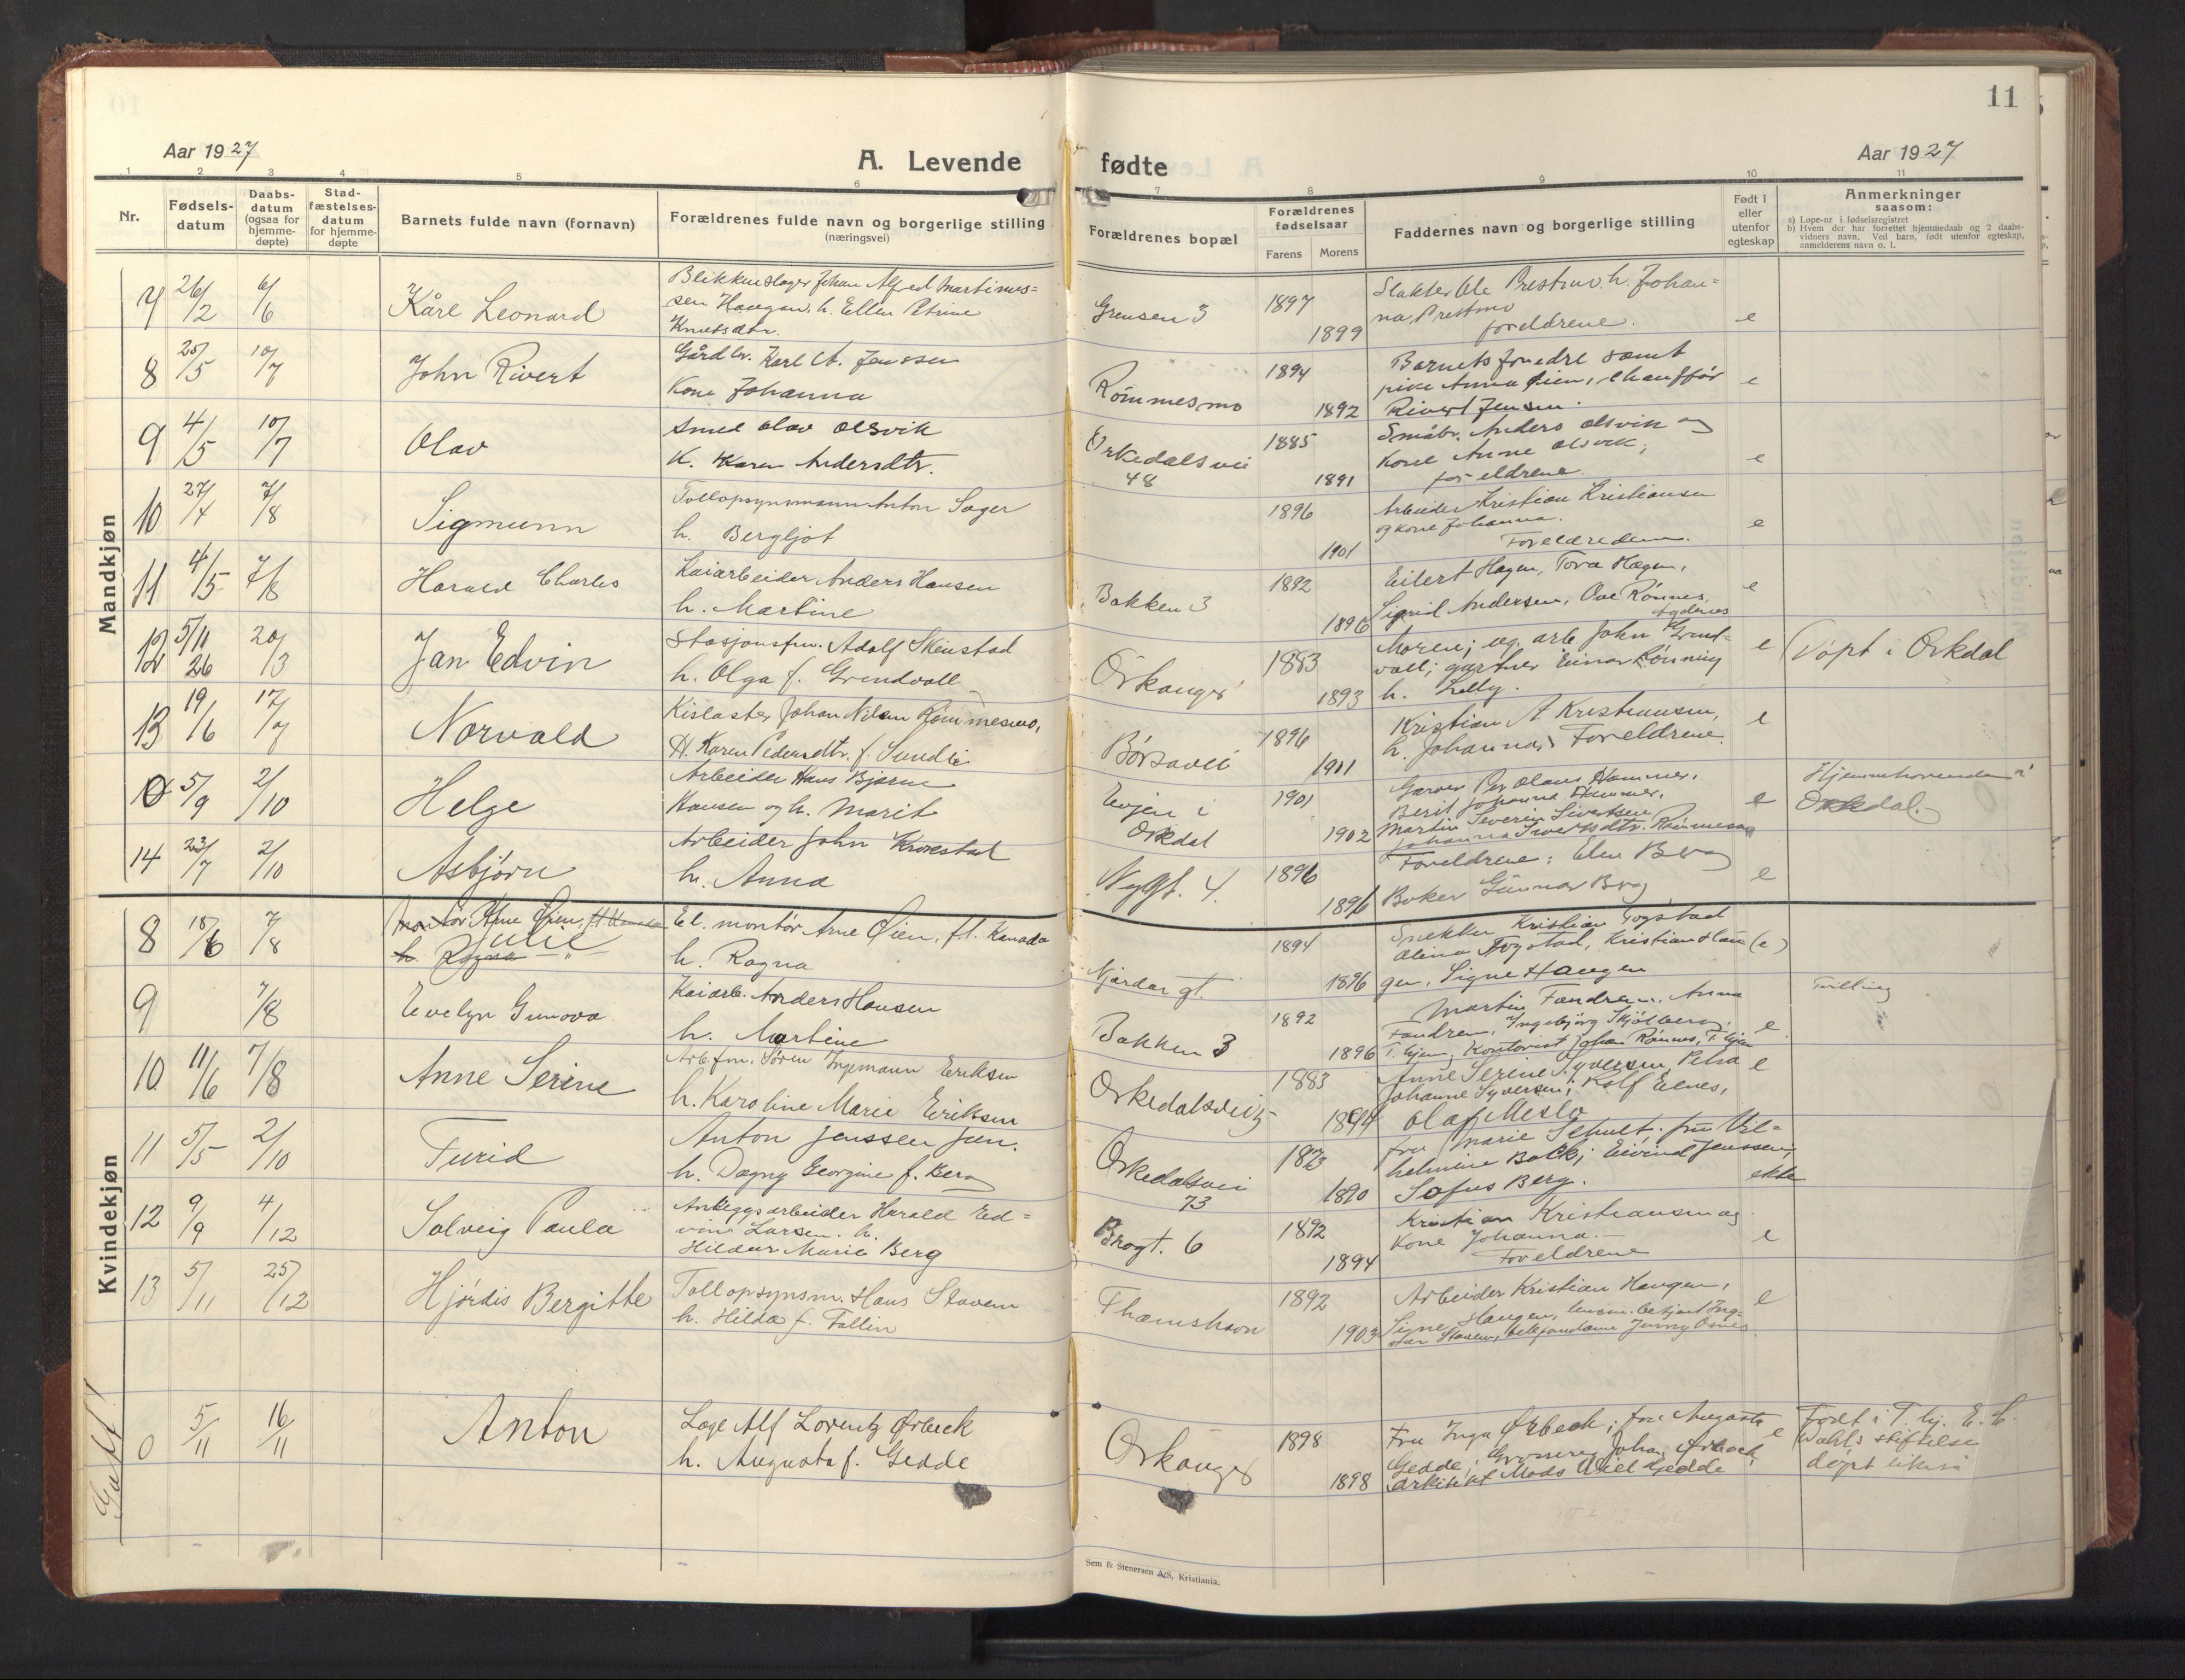 11
Aar 1927
A. Levende
fødte
Aar 1927
1 2 3 4 5 6 7 8 9 10 11
Nr.
Fødsels-
datum
Daabs-
datum
(ogsaa for
hjemme-
døpte)
Stad-
fæstelses-
datum
for hjemme-
døpte
Barnets fulde navn (fornavn)
Forældrenes fulde navn og borgerlige stilling
(næringsvei)
Forældrenes bopæl
Forældrenes
fødselsaar
Farens Morens
Faddernes navn og borgerlige stilling
Født i
eller
utenfor
egteskap
Anmerkninger
saasom:
a) Løpe-nr i fødselsregistret
b) Hvem der har forrettet hjemmedaab og 2 daabs-
vidners navn. Ved barn, født utenfor egteskap,
anmelderens navn o. l.
Mandkjøn
7 26/2 6/6 Kåre Leonard
Blikkenslager Johan Alfred Martinus-
sen Haugan, h. Ellen Petrine
Knutsdtr.
Grensen 3 1897 1899
Slakter Ole Prestmo. h. Johan-
na Prestmo
foreldrene. e
8 25/5 10/7 John Rivert
Gårdbr. Karl A. Jenssen
Kone Johanna
Rømmesmo 1894 1892
Barnets foredre samt
pike Anna Øien, chauffør
Rivert Jensen. e
9 4/5 10/7 Olav
Smed Olav Olsvik
K. Karen Andersdtr.
Orkedalsvei
48 1885 1891
Småbr. Anders Olsvik og
Kone Anne Olsvik;
foreldrene. e
10 27/4 7/8 Sigmunn
Tollopsynsmann Anton Sager
h. Bergljot
1896 1901
Arbeider Kristian Kristiansen
og kone Johanna.
e
11 4/5 7/8 Harald Charles
Kaiarbeider Anders Hansen
h. Martine
Bakken 3 1892 1896
Eilert Hagen, Tora Hagen,
Sigrid Andersen, Ove Rønnes,
e
12 5/11 26 20/3 Jan Edvin
Stasjonsfm. Adolf Skeistad
h. Olga f. Grindvoll
Orkanger 1883 1893
Moren; og arb John Grind-
voll; gartner Einar Rønning
h. Lelly. e
Døpt i Orkdal
13 19/6 17/7 Norvald
Kislaster Johan Nilsen Rømmesmo,
H. Karen Pedersdtr. f. Sundli
Børsavei 1896 1901
Kristian A Kristiansen,
h. Johanna, Foreldrene. e
0 5/9 2/10 Helge
Arbeider Hans Bjarne
Hansen og h. Marit
Evjen i
Orkdal 1901 1902
Garver Per Olaus Hammer,
Berit Johanna Hammer,
Martin Severin Sivertsen,
Johanna Sivertsdtr. Rømmesmo e
Hjemmehørende i
Orkdal.
14 23/7 2/10 Asbjørn
Arbeider John Krokstad
h. Anna
Nygt. 4. 1896 1896
Foreldrene; Elen Berg
Baker Gunnar Berg e
Kvindekjøn
8 18/6 7/8 Montør Arne Øien, f.t. Kanada
h. Ragna
Julie
El. montør Arne Øien, f.t. Kanada
h. Ragna
Njardar gt. 1894 1896
Snekker Kristian Fogstad
Olina Fogstad, Kristian Hau
gen, Signe Haugen (e)
9 7/8 Evelyn Gunova
Kaiarb. Anders Hansen
h. Martine
Bakken 3 1892 1896
Martin Fandrem, Anna
Fandrem, Ingebjørg Skjølberg,
T.hjem, Kontorist Johan Rømnes, T.hjem e
Tvilling
10 11/6 7/8 Anne Serine
Arbfm. Søren Ingemann Eriksen
h. Karoline Marie Eriksen
Orkedalsvei 1883 1894
Anne Serine Syversen, Petra
Johanne Syversen; Rolf Eines,
Olaf Meslo e
11 5/5 2/10 Turid
Anton Jenssen jun.
h. Dagny Georgine f. Berg
Orkedalsvei
73 1873 1890
Fru Marie Schult; fru Vil-
helmine Balk; Eivind Jenssen;
Sofus Berg. ekte
12 9/9 4/12 Solveig Paula
Anleggsarbeider Harald Ed-
vin Larsen. h.
Hildur Marie Berg
Brogt. 6 1892 1894
Kristian Kristiansen og
Kone Johanna.
Foreldrene e
13 5/11 25/12 Hjørdis Bergitte
Tollopsynsm. Hans Stavem
h. Hilda f. Fallin
Thamshavn 1892 1903
Arbeider Kristian Haugen,
Signe Haugen, lensm.betjent Ing-
var Stavem, telefondame Jenny Omes e
Gutt!
0 5/11 16/11 Anton
Læge Alf Lorentz Ørbeck
h. Augusta f. Gedde
Orkanger 1898 1898
Fru Inga Ørbeck; fru Augusta
Gedde; Grosserer Johan Ørbeck;
arkitekt Mads Wiel Gedde e
Født i T.hj. E. C.
Dahls stiftelse
døpt likeså
Sem & Stenersen A/S, Kristiania.